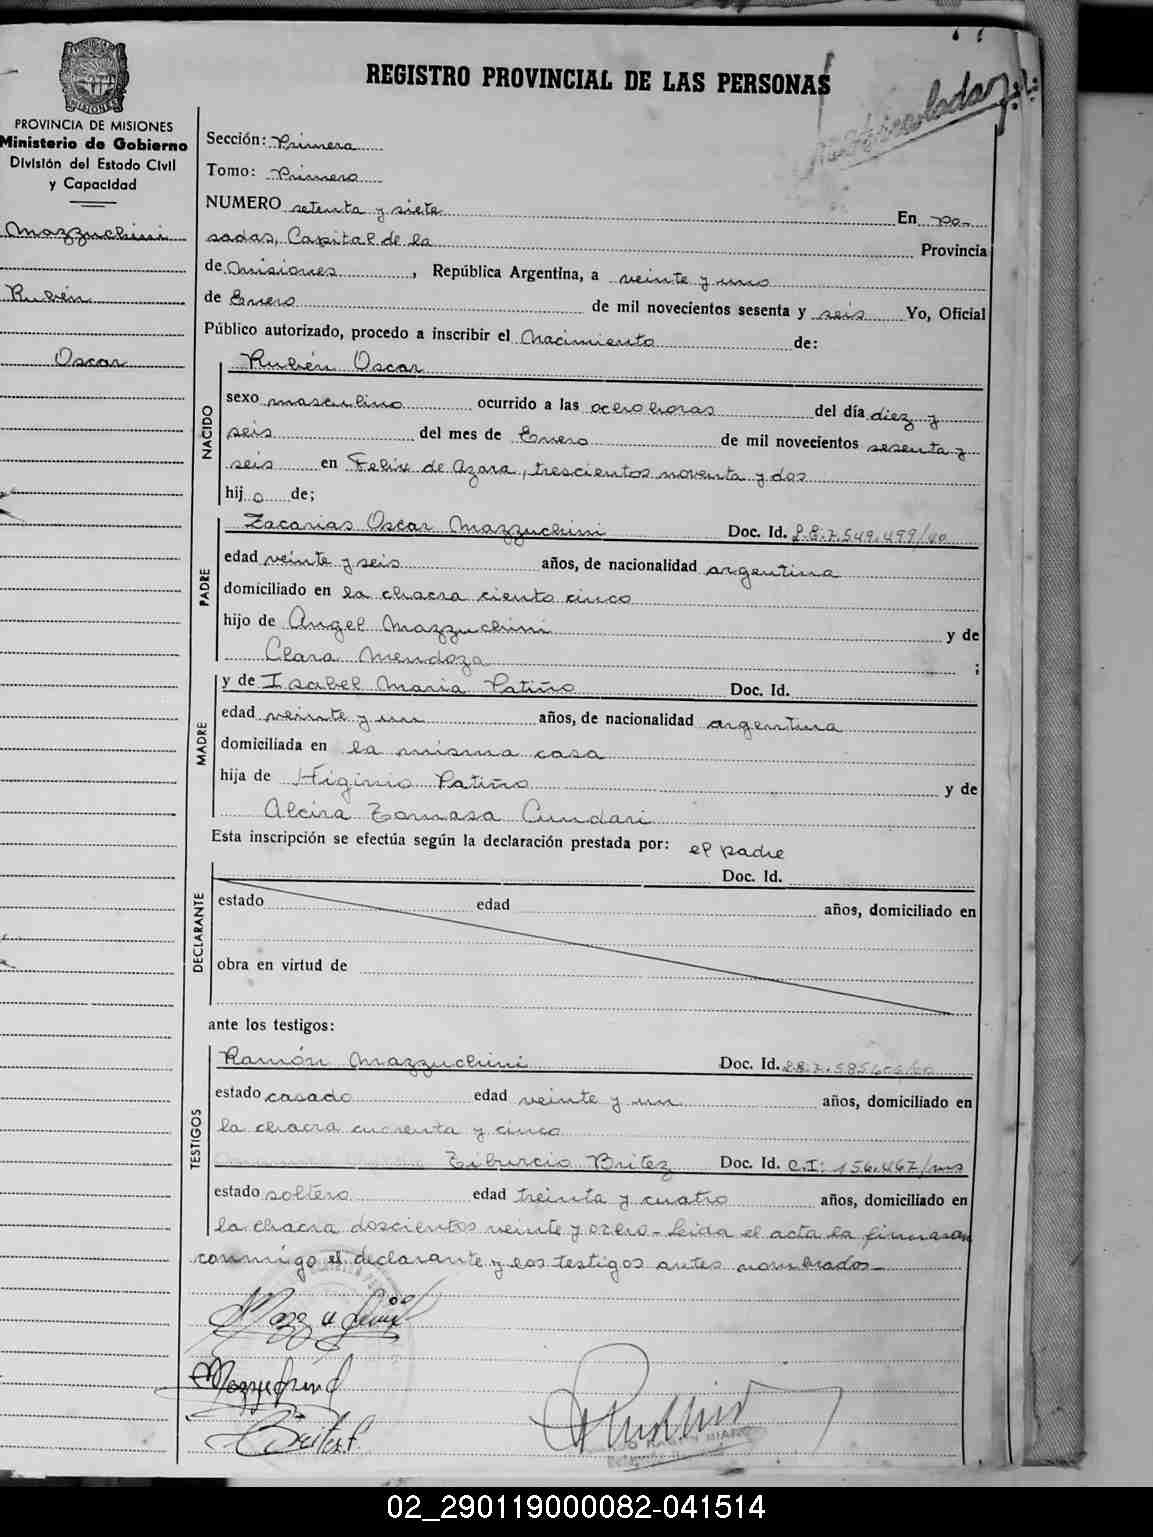 REGISTRO PROVINCIAL DE LAS PERSONAS
Matriculada
PROVINCIA DE MISIONES
Ministerio de Gobierno
División del Estado Civil
y Capacidad
Mazzuchini
Rubén
Oscar
Sección: Primera
Tomo: Primero
NUMERO setenta y siete En Po-
sadas, Capital de la Provincia
de Misiones, República Argentina, a veinte y uno
de Enero de mil novecientos sesenta y seis Yo, Oficial
Público autorizado, procedo a inscribir el Nacimiento de:
NACIDO
Rubén Oscar
sexo masculino ocurrido a las ocho horas del día diez y
seis del mes de Enero de mil novecientos sesenta y
seis en Felix de Azara, trescientos noventa y dos
hijo de;
PADRE
Zacarias Oscar Mazzuchini Doc. Id. L.E. 7.549.499/60
edad veinte y seis años, de nacionalidad argentina
domiciliado en la chacra ciento cinco
hijo de Angel Mazzuchini y de
Clara Mendoza ;
MADRE
y de Isabel Maria Patiño Doc. Id.
edad veinte y un años, de nacionalidad argentina
domiciliada en la misma casa
hija de Higinio Patiño y de
Alcira Tomasa Cundari
Esta inscripción se efectúa según la declaración prestada por: el padre
Doc. Id.
DECLARANTE
estado edad años, domiciliado en
obra en virtud de
ante los testigos:
TESTIGOS
Ramón Mazzuchini Doc. Id.
estado casado edad veinte y un años, domiciliado en
la chacra cuarenta y cinco
Tiburcio Britez Doc. Id. C.I: 156.467/ms
estado soltero edad treinta y cuatro años, domiciliado en
la chacra doscientos veinte y ocho- Leida el acta la firmaron
conmigo el declarante y los testigos antes nombrados-
Mazzuchini
Mazzuchini
Britez
02_290119000082-041514